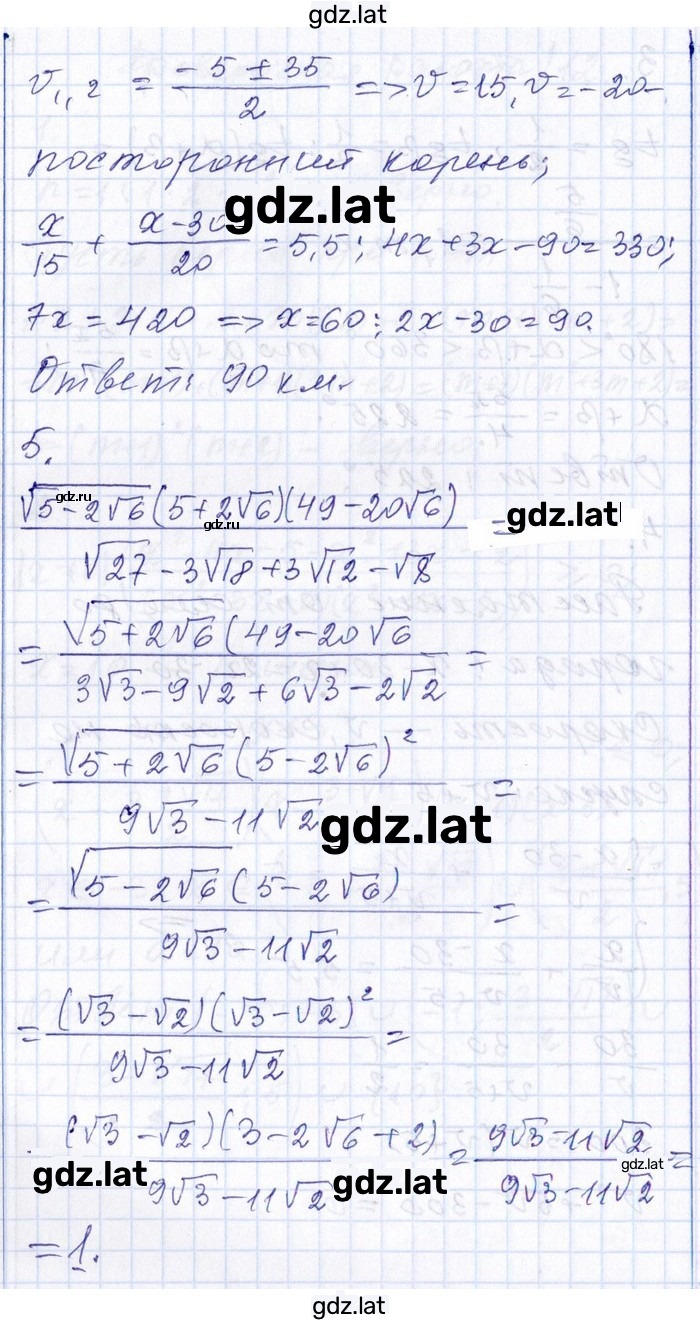 gdz.lat
v₁,₂ = (-5 ± 35)/2 => v = 15, v = -20-
посторонний корень;
gdz.lat
x/15 + (x-30)/20 = 5,5; 4x+3x-90=330;
7x = 420 => x=60; 2x-30=90.
Ответ: 90 км.
5.
√(5-2√6)(5+2√6)(49-20√6) / (√27 - 3√18 + 3√12 - √8) =
gdz.ru
gdz.ru
gdz.lat
= √(5+2√6)(49-20√6 / (3√3 - 9√2 + 6√3 - 2√2) =
= √(5+2√6)(5-2√6)² / (9√3 - 11√2) =
gdz.lat
= √(5-2√6)(5-2√6) / (9√3 - 11√2) =
= (√3-√2)(√3-√2)² / (9√3 - 11√2) =
(√3-√2)(3-2√6+2) / (9√3-11√2) = (9√3-11√2) / (9√3-11√2) =
gdz.lat
gdz.lat
gdz.lat
= 1.
gdz.lat